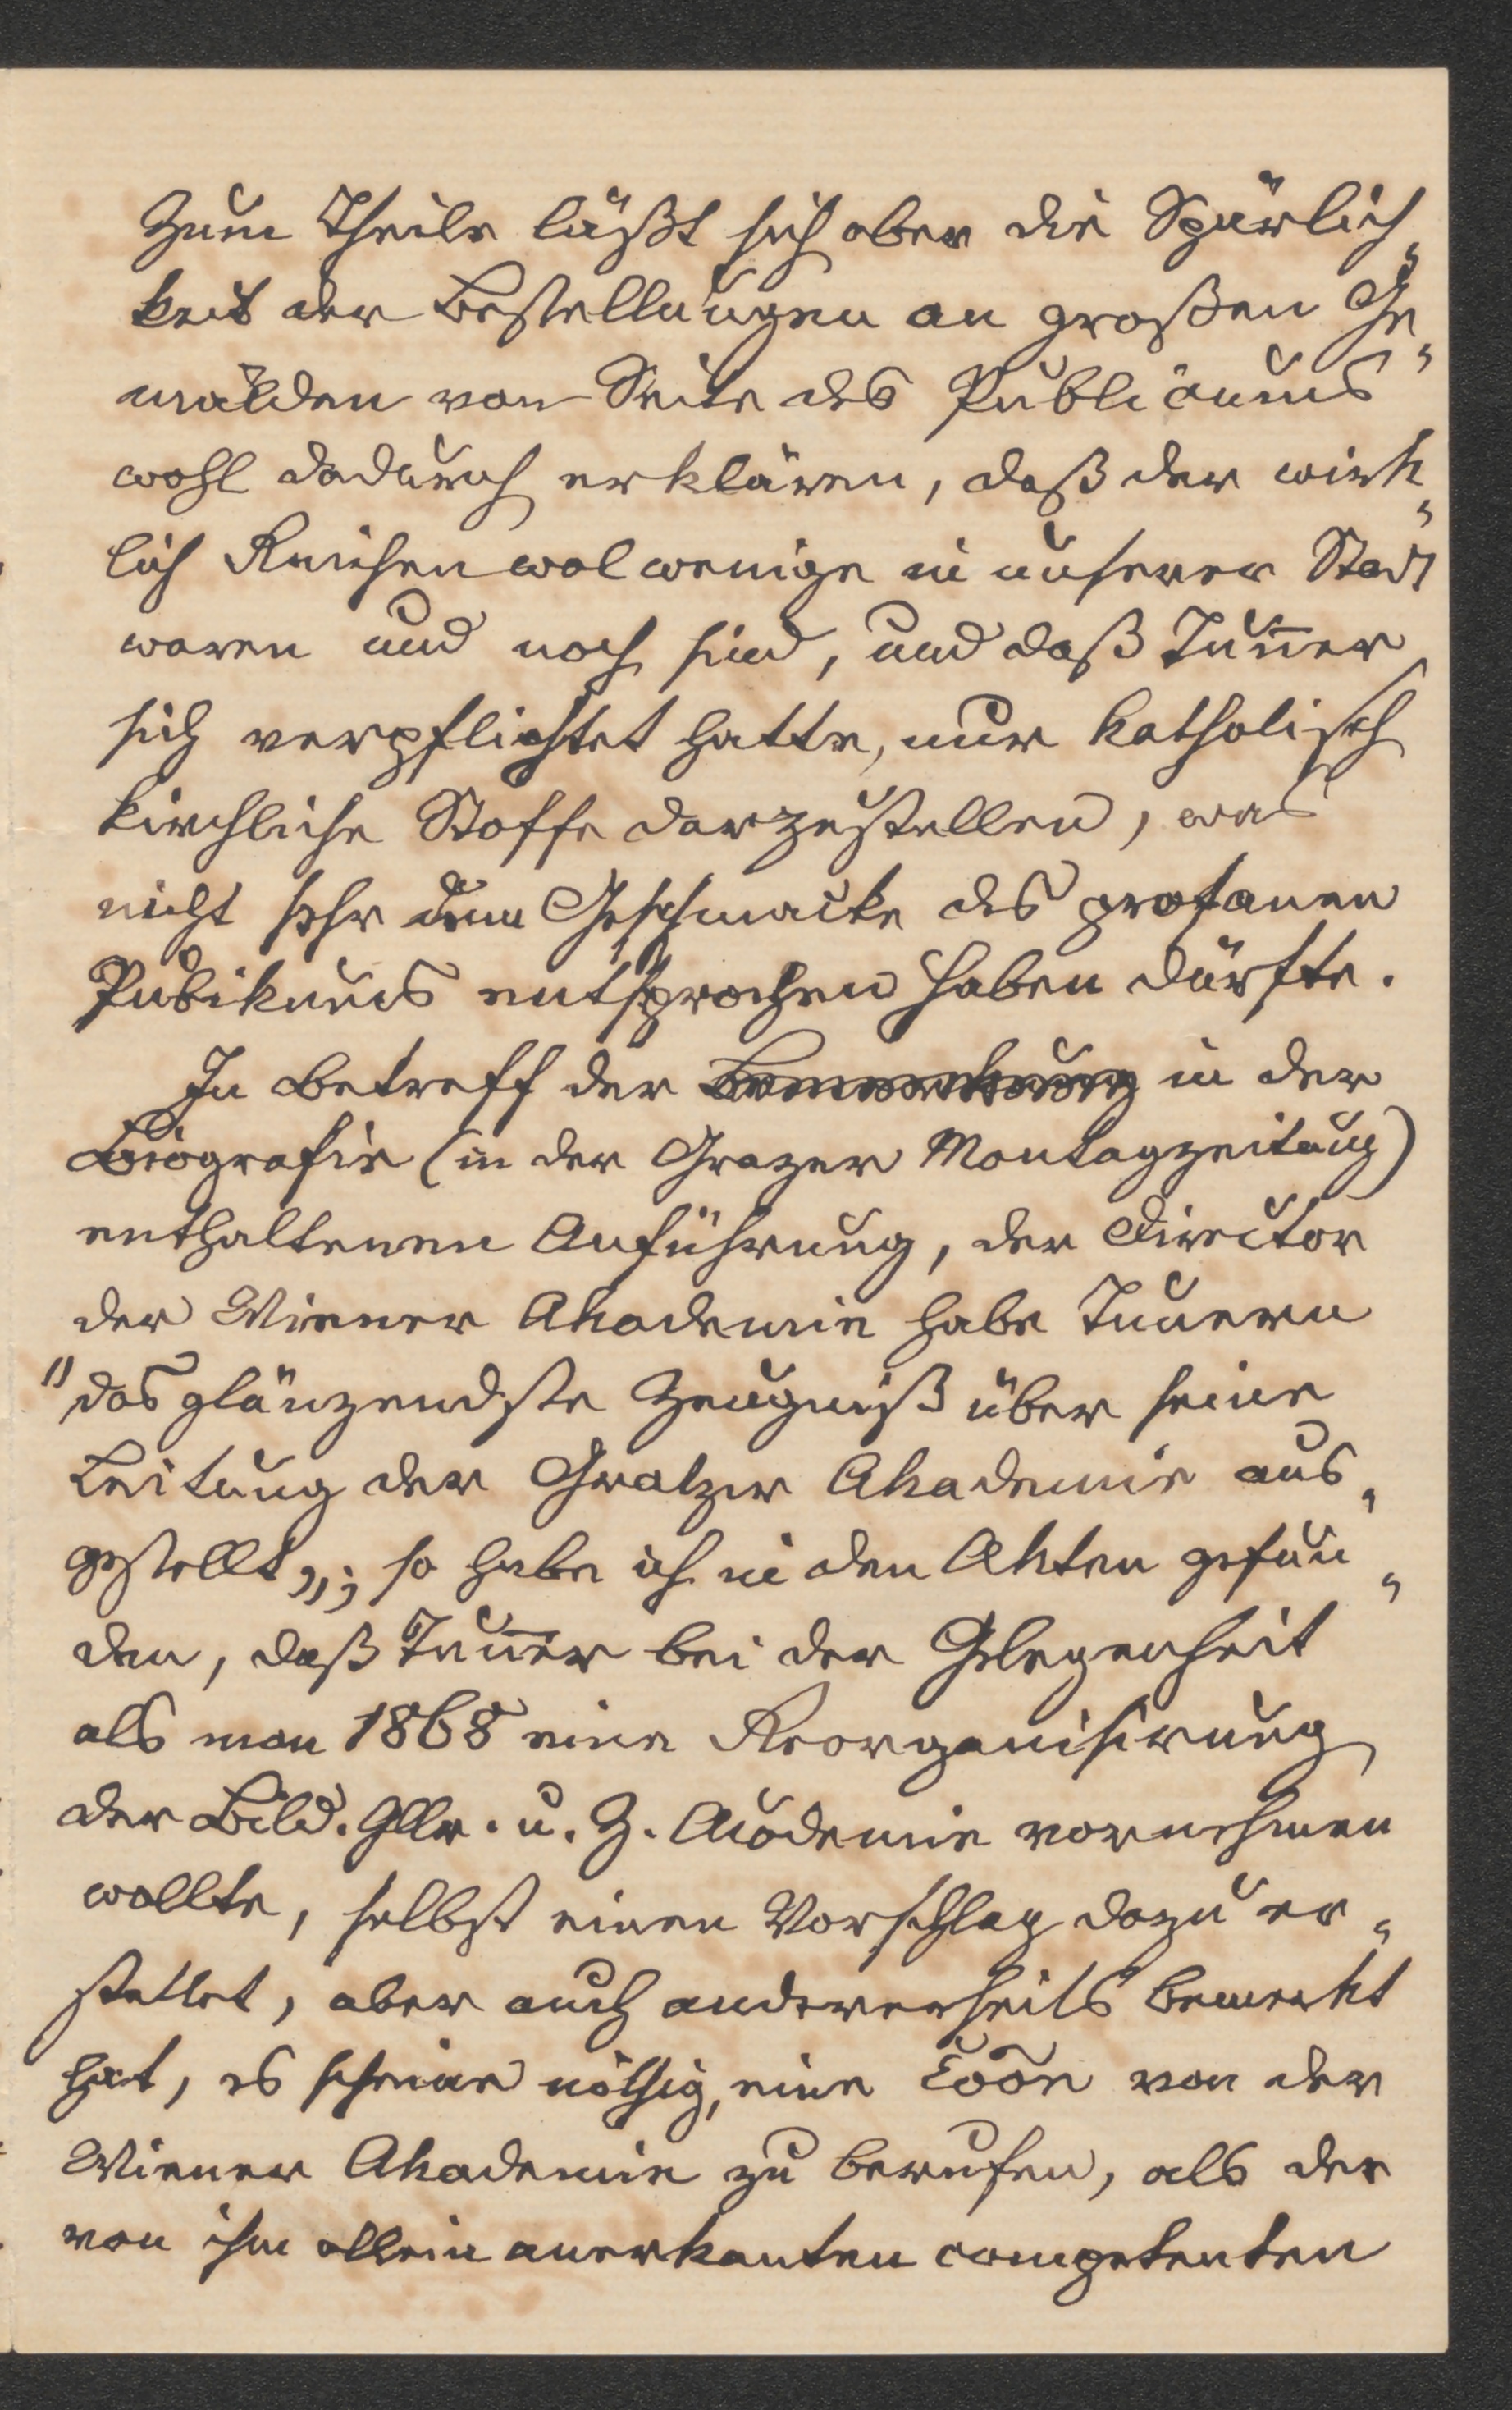 Zum Theile läßt sich aber die Spärlich„
keit der Bestellungen an großen Ge„
mälden von Seite des Publicums
wohl dadurch erklären, daß der wirk„
lich Reichen wol wenige in unserer Stadt
waren und noch sind, und daß Tun̄er
sich verpflichtet hatte, nur katholisch
kirchliche Stoffe darzustellen, was
nicht sehr dem Geschmacke des profanen
Pubikums entsprochen haben dürfte.
In betreff der in der
Biografie (in der Grazer Montagzeitung)
enthaltenen Anführung, der Director
der Wiener Akademie habe Tunern
"das glänzendste Zeugniß über seine
Leitung der Gratzer Akademie aus„
gestellt„; so habe ich in den Akten gefun„
den, daß Tun̄er bei der Gelegenheit
als man 1868 eine Reorganisirung
der Bild. Gller. u. Z. Acodemie vornehmen
wollte, selbst einen Vorschlag dazu er„
stattet, aber auch andererseits bemerkt
hat, es scheine nöthig, eine von der
Wiener Akademie zu berufen, als der
von ihm allein anerkanten competenten